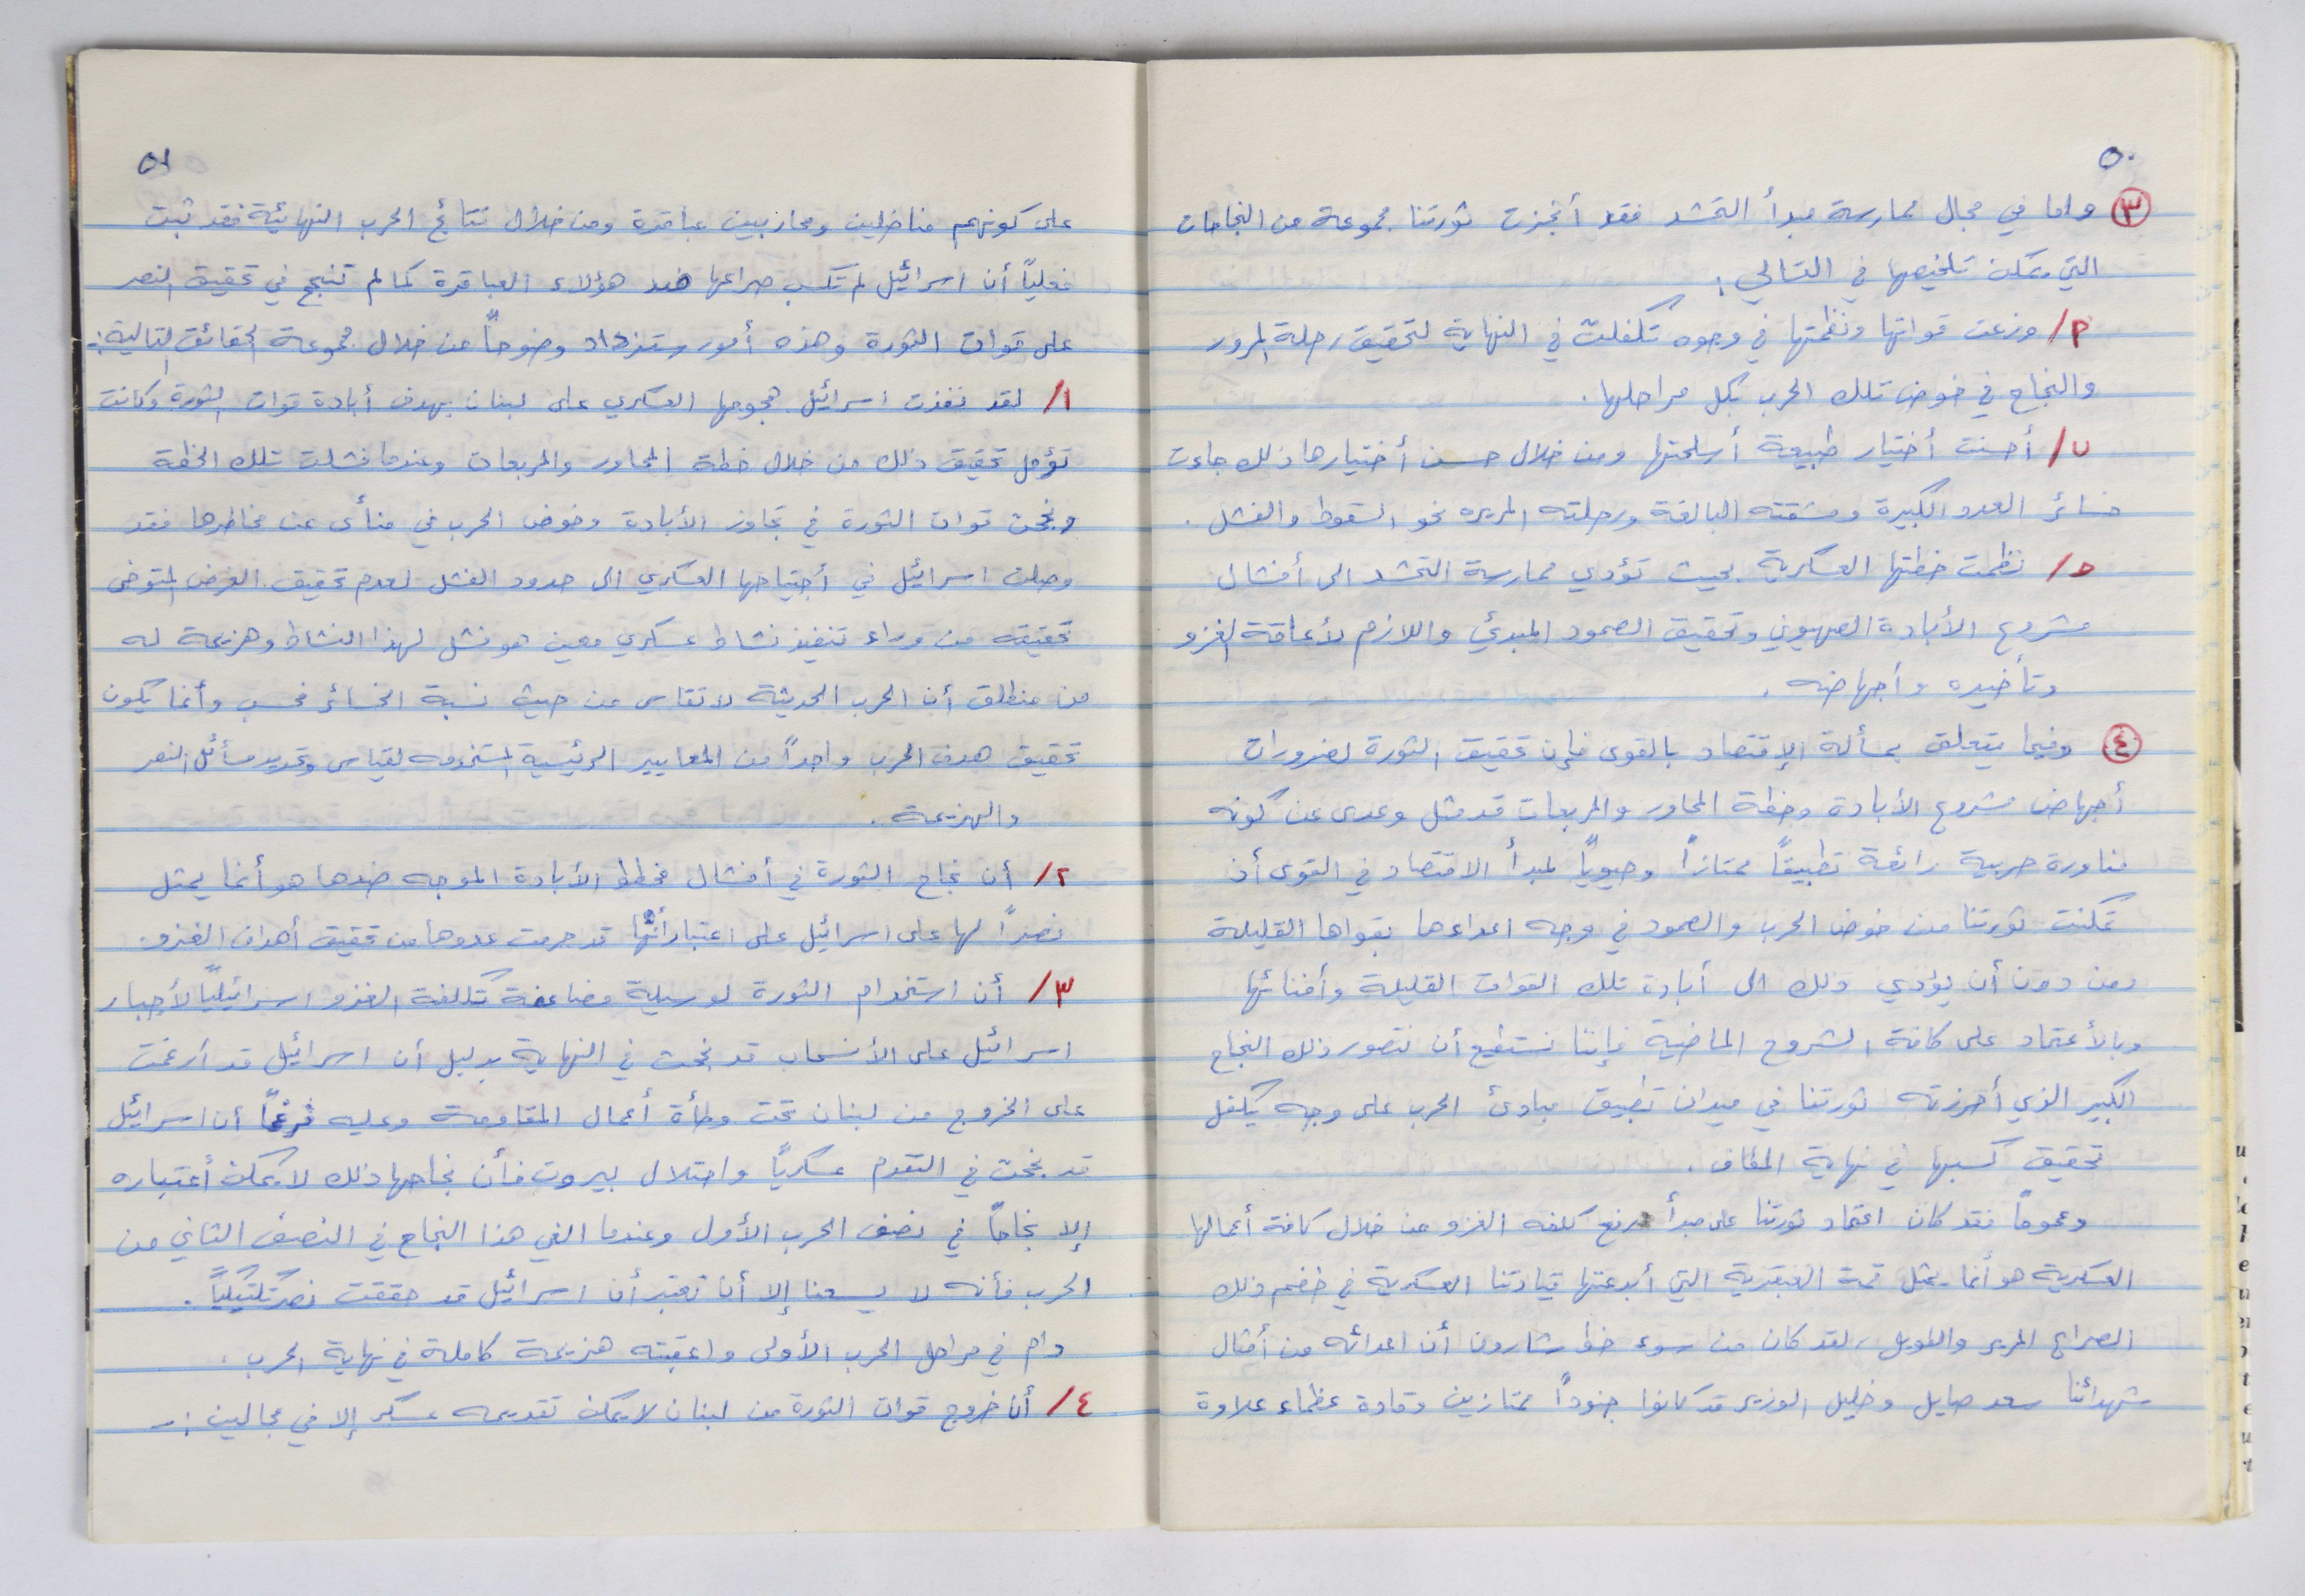 ٥٠
٣ واما في مجال ممارسة مبدأ التحشد فقد أنجزت ثورتنا مجموعة من النجاحات
التي يمكن تلخيصها في التالي :
٢/ وزعت قواتها ونظمتها في وجوه تكفلت في النهاية لتحقيق رحلة المرور
والنجاح في خوض تلك الحرب بكل مراحلها .
ب/ أحسنت أختيار طبيعة أسلحتها ومن خلال حسن أختيارها ذلك جاءت
خسائر العدو الكبيرة ومشقته البالغة ورحلته المريره نحو السقوط والفشل .
ح/ نظمت خطتها العسكرية بحيث تؤدي ممارسة التحشد الى أفشال
مشروع الأبادة الصهيوني وتحقيق الصمود المبدئي واللازم لأعاقة الغزو
وتأخيره وأجهاضه .
٤ وفيما يتعلق بمسألة الإقتصاد بالقوى فإن تحقيق الثورة لضرورات
أجهاض مشروع الأبادة وخطة المحاور والمربعات قد مثل وعدى عن كونه
مناورة حربية رائعة تطبيقاً ممتازاً وحيوياً لمبدأ الاقتصاد في القوى أذ
تمكنت ثورتنا من خوض الحرب والصمود في وجه اعداءها بقواها القليلة
ومن دون أن يؤدي ذلك الى أبادة تلك القوات القليلة وأفنائها
وبالأعتماد على كافة الشروح الماضية فإننا نستطيع أن نتصور ذلك النجاح
الكبير الذي أحرزته ثورتنا في ميدان تطبيق مبادئ الحرب على وجه يكفل
تحقيق كسبها في نهاية المطاف .
وعموماً فقد كان اعتماد ثورتنا على مبدأ رفع كلفه الغزو من خلال كافة أعمالها
العسكرية هو أنما يمثل قمة العبقرية التي أبدعتها قيادتنا العسكرية في خضم ذلك
الصراع المرير والطويل، لقد كان من سوء خظ شارون أن اعدائه من أمثال
شهدائنا سعد صايل وخليل الوزير قد كانوا جنوداً ممتازين وقادة عظماء علاوة
٥١
على كونهم مناضلين ومحاربين عباقرة ومن خلال نتائج الحرب النهائية فقد ثبت
فعلياً أن اسرائيل لم تكسب صراعها ضد هؤلاء العباقرة كما لم تنجح في تحقيق النصر
على قوات الثورة وهذه أمور ستزداد وضوحاً من خلال مجموعة الحقائق التالية :
١/ لقد نفذت اسرائيل هجومها العسكري على لبنان بهدف أبادة قوات الثورة وكانت
تؤمل تحقيق ذلك من خلال خطة المحاور والمربعات وعندما فشلت تلك الخطة
ونجحت قوات الثورة في تجاوز الأبادة وخوض الحرب في منأى عن مخاطرها فقد
وصلت اسرائيل في أجتياحها العسكري الى حدود الفشل لعدم تحقيق الغرض المتوخى
تحقيقه من وراء تنفيذ نشاط عسكري معين هو فشل لهذا النشاط وهزيمة له
من منطلق أن الحرب الحديثة لا تقاس من حيث نسبة الخسائر فحسب وأنما يكون
تحقيق هدف الحرب واحداً من المعايير الرئيسية المستخدمه لقياس وتحديد مسائل النصر
والهزيمة .
٢/ أن نجاح الثورة في أفشال مخطط الأبادة الموجه ضدها هو أنما يمثل
نصراً لها على اسرائيل على اعتبار أنها قد حرمت عدوها من تحقيق أهداف الغزو .
٣/ أن استخدام الثورة لوسيلة مضاعفة تكلفة الغزو اسرائيلياً لأجبار
اسرائيل على الأنسحاب قد نجحت في النهاية بدليل أن اسرائيل قد أرغمت
على الخروج من لبنان تحت وطأة أعمال المقاومة وعليه فرغماً أن اسرائيل
قد نجحت في التقدم عسكرياً واحتلال بيروت فأن نجاحها ذلك لا يمكن أعتباره
إلا نجاحاً في نصف الحرب الأول وعندما الغي هذا النجاح في النصف الثاني من
الحرب فأنه لا يسعنا إلا أن نعتبر أن اسرائيل قد حققت نصر تكتيكياً .
دام في مراحل الحرب الأولى واعقبته هزيمة كاملة في نهاية الحرب .
٤/ أن خروج قوات الثورة من لبنان لا يمكن تقديمه عسكر إلا في مجالين :-